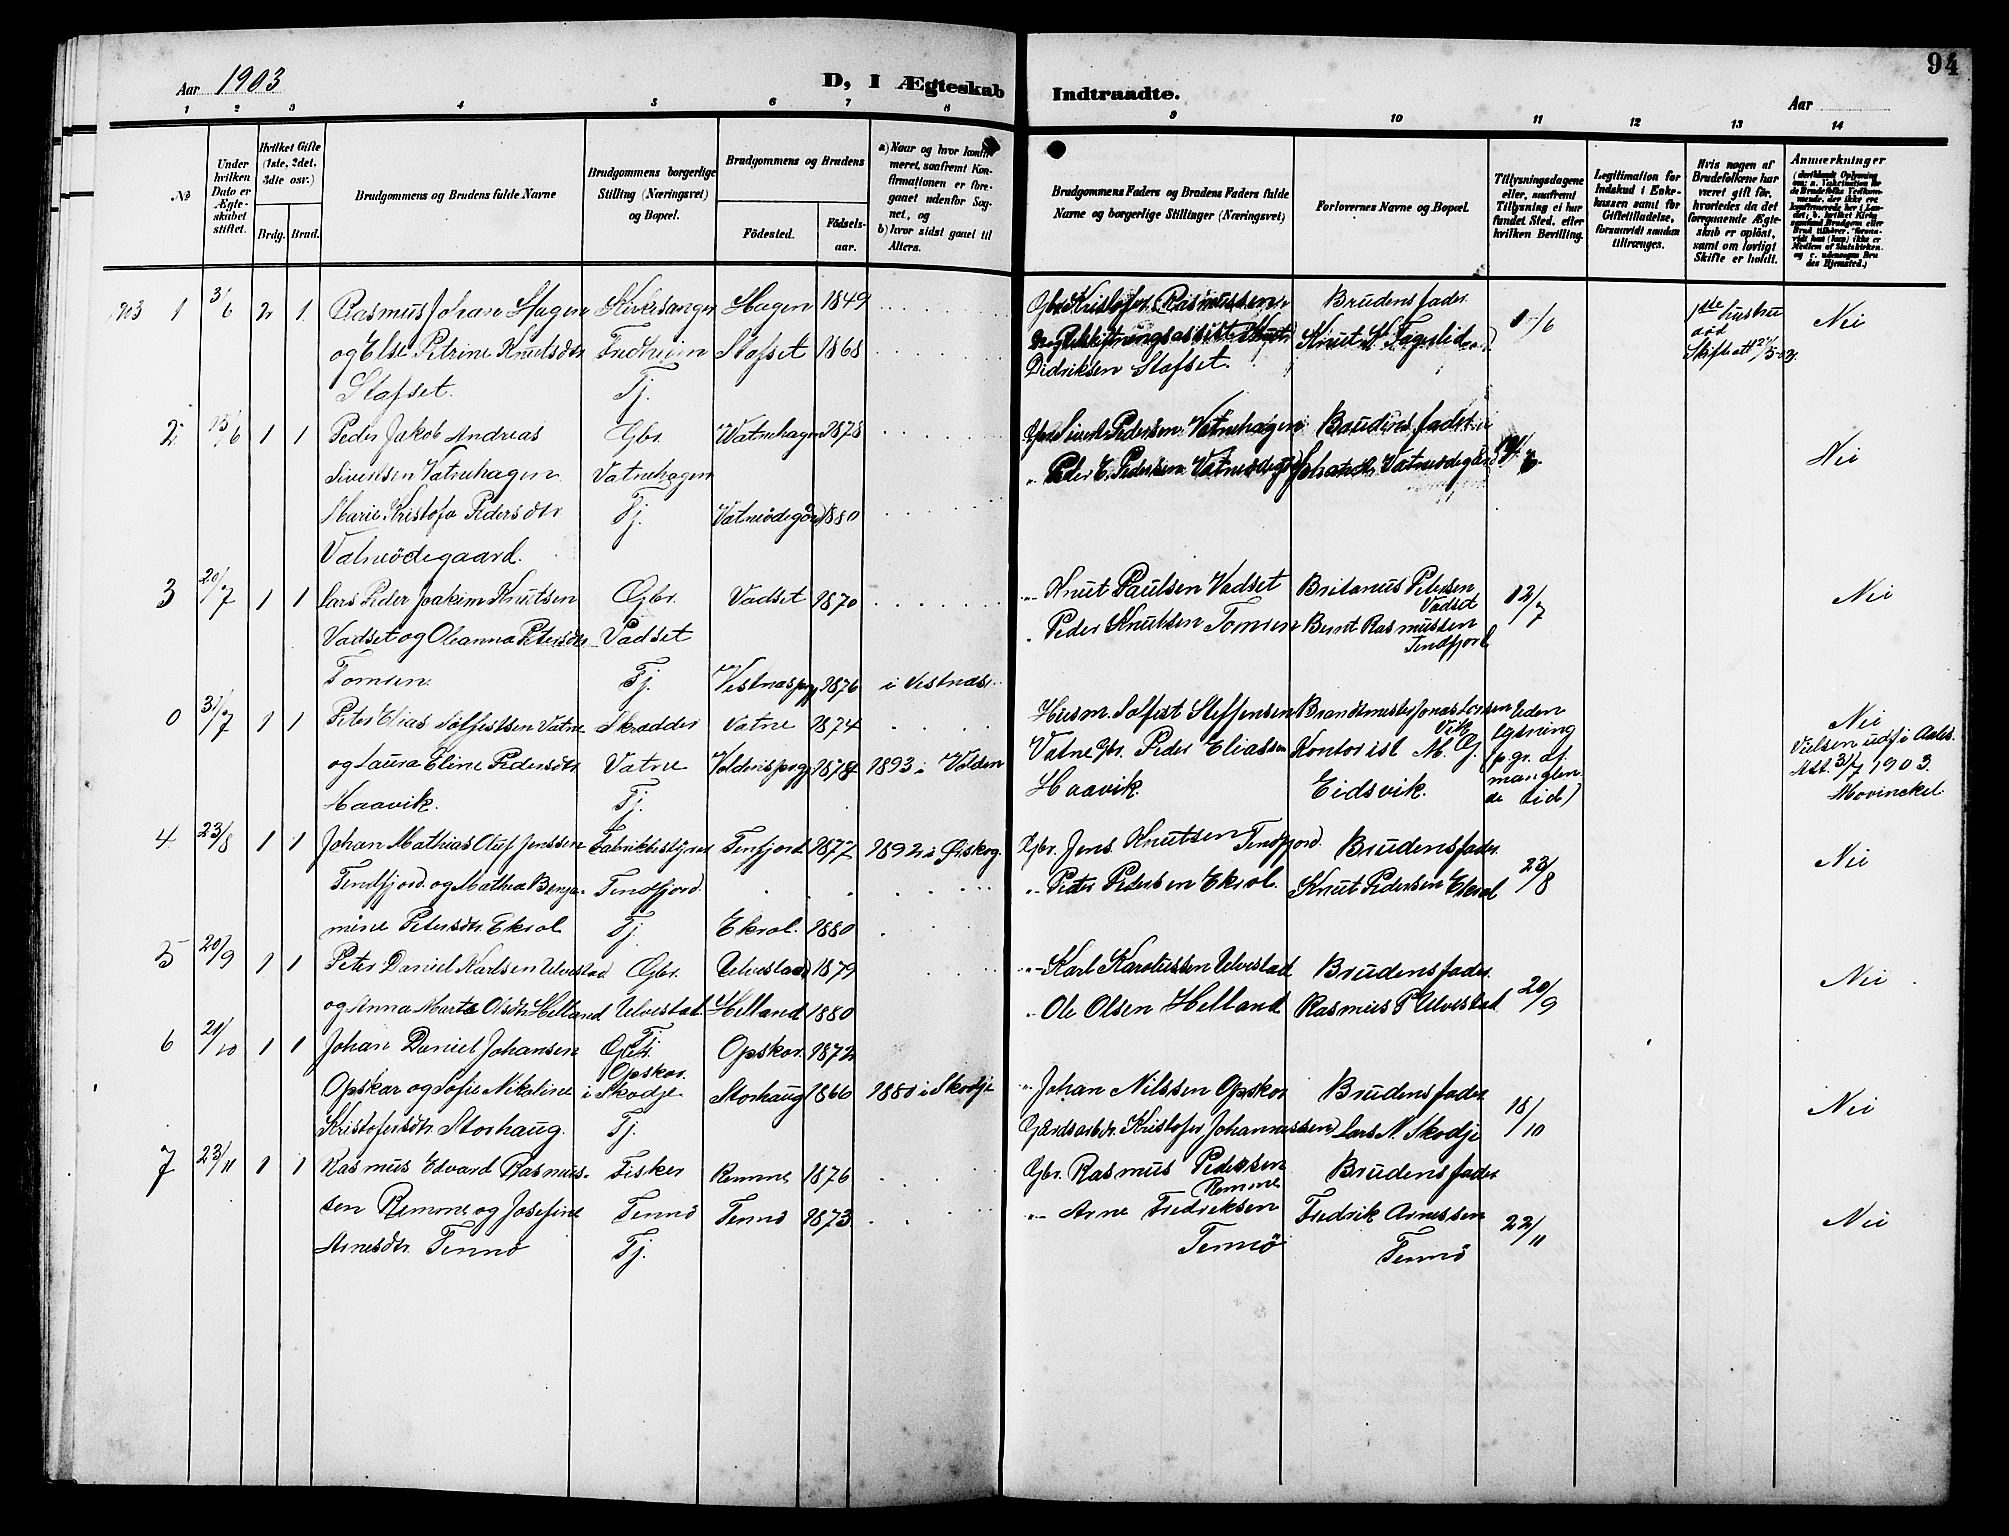 94
Aar 1903
D, I Ægteskab Indtraadte.
Aar
1 2 3 4 5 6 7 8 9 10 11 12 13 14
No
Under hvilken Dato er Ægteskabet stiftet.
Hvilket Gifte (1ste, 2det, 3die osv.)
Brdg. Brud.
Brudgommens og Brudens fulde Navne
Brudgommens borgerlige Stilling (Næringsvei) og Bopæl.
Brudgommens og Brudens
Födested.
Födselsaar.
a) Naar og hvor konfirmeret, saafremt Konfirmationen er foregaaet udenfor Sognet, og
b) hvor sidst gaaet til Alters.
Brudgommens Faders og Brudens Faders fulde Navne og borgerlige Stillinger (Næringsvei)
Forlovernes Navne og Bopæl.
Tillysningsdagene eller, saafremt Tillysning ei har fundet Sted, efter hvilken Bevilling.
Legitimation for Indskud i Enkekassen samt for Giftetilladelse, forsaavidt saadan tiltrænges.
Hvis nogen af Brudefolkene har været gift før, hvorledes da det foregaaende Ægteskab er opløst, samt om lovligt Skifte er holdt.
Anmærkninger
1903 1 3/6 2 1 Rasmus Johan Hagen
og Else Petrine Knutsdtr
Stafset.
Fj.
Hagen 1849
Stafset 1868
Gbr. Kristofer Rasmussen
Didriksen Stafset.
Brudens fader
Knut K Fagerlid
1ste hustru
død
Skifteatt 2/5 03.
Nei
2 15/6 1 1 Peder Jakob Andreas
Sivertsen Vatnehagen
Marie Kristofa Pedersdtr
Vatneödegaard.
Gbr.
Vatnehagen
Tj.
Vatnehagen 1878
Vatneödegård 1880
Gbr. Sivert Pedersen Vatnehagen
" Peder E. Pedersen Vatneödegård
Brudens fader
Vatneödegård
14/6.
Nei
3 20/7 1 1 Lars Peder Joakim Knutsen
Vadset og Oleanna Petersdtr
Tomren.
Gbr.
Vadset
Tj.
Vadset 1870
Vestnes pgj. 1876
i Vestnes.
"- Knut Paulsen Vadset
" Peder Knutsen Tomren
Britanus Petersen
Vadset
Bernt Rasmussen
Tendfjord
12/7
Nei
0 31/7 1 1 Peter Elias Solfestsen Vatne
og Laura Eline Pedersdtr
Haavik.
Skrædder
Vatne
Tj.
Vatne 1874
Voldens pgj. 1878
1893 i Volden
Husm. Solfest Steffensen
Vatne Gbr. Peder Eliassen
Haavik.
Brandmester Jonas Larsen
Vik
Kontorist M. G.
Eidsvik.
Uden
lysning
(p. gr. af
manglen
de tid)
Nei
Vielsen udf i Aales.
Att. 31/7 1903.
Hovinckel
4 23/8 1 1 Johan Mathias Oluf Jenssen
Tendfjord. og Mathea Benja-
mine Petersdtr Ekrol
Fabrikbestyrer
Tendfjord.
Tj.
Tenfjord 1877
Ekrol. 1880
1892 i Ørskog.
Gbr. Jens Knutsen Tendfjord
"- Peter Pedersen Ekrol.
Brudens fader
Knut Pedersen Ekrol
23/8
Nei
5 20/9 1 1 Peter Daniel Karlsen Ulvestad
og Anna Marta Olsdtr Helland
Gbr.
Ulvestad.
Tj
Ulvestad 1879
Helland 1880
"- Karl Karolussen Ulvestad
"- Ole Olsen Helland
Brudens fader
Rasmus P Ulvestad
20/9
Nei
6 21/10 1 1 Johan Daniel Johansen
Opskar og Sofie Nikoline
Kristofersdtr. Storhaug.
Gbr.
Opskar.
i Skodje
Tj.
Opskar. 1872
Storhaug 1866
1880 i Skodje
"- Johan Nilssen Opskar
Gaardsarbdr. Kristofer Johannessen
Brudens fader
Lars N. Skodje
18/10
Nei
7 23/11 1 1 Rasmus Edvard Rasmus-
sen Remme og Josefine
Arnesdtr. Tennö
Fisker
Tennö
Tj.
Remme 1876
Tennö 1873
Gbr. Rasmus Pedersen
Remme
"- Arne Fredriksen
Tennö
Brudens fader
Fredrik Arnessen
Tennö
22/11
Nei